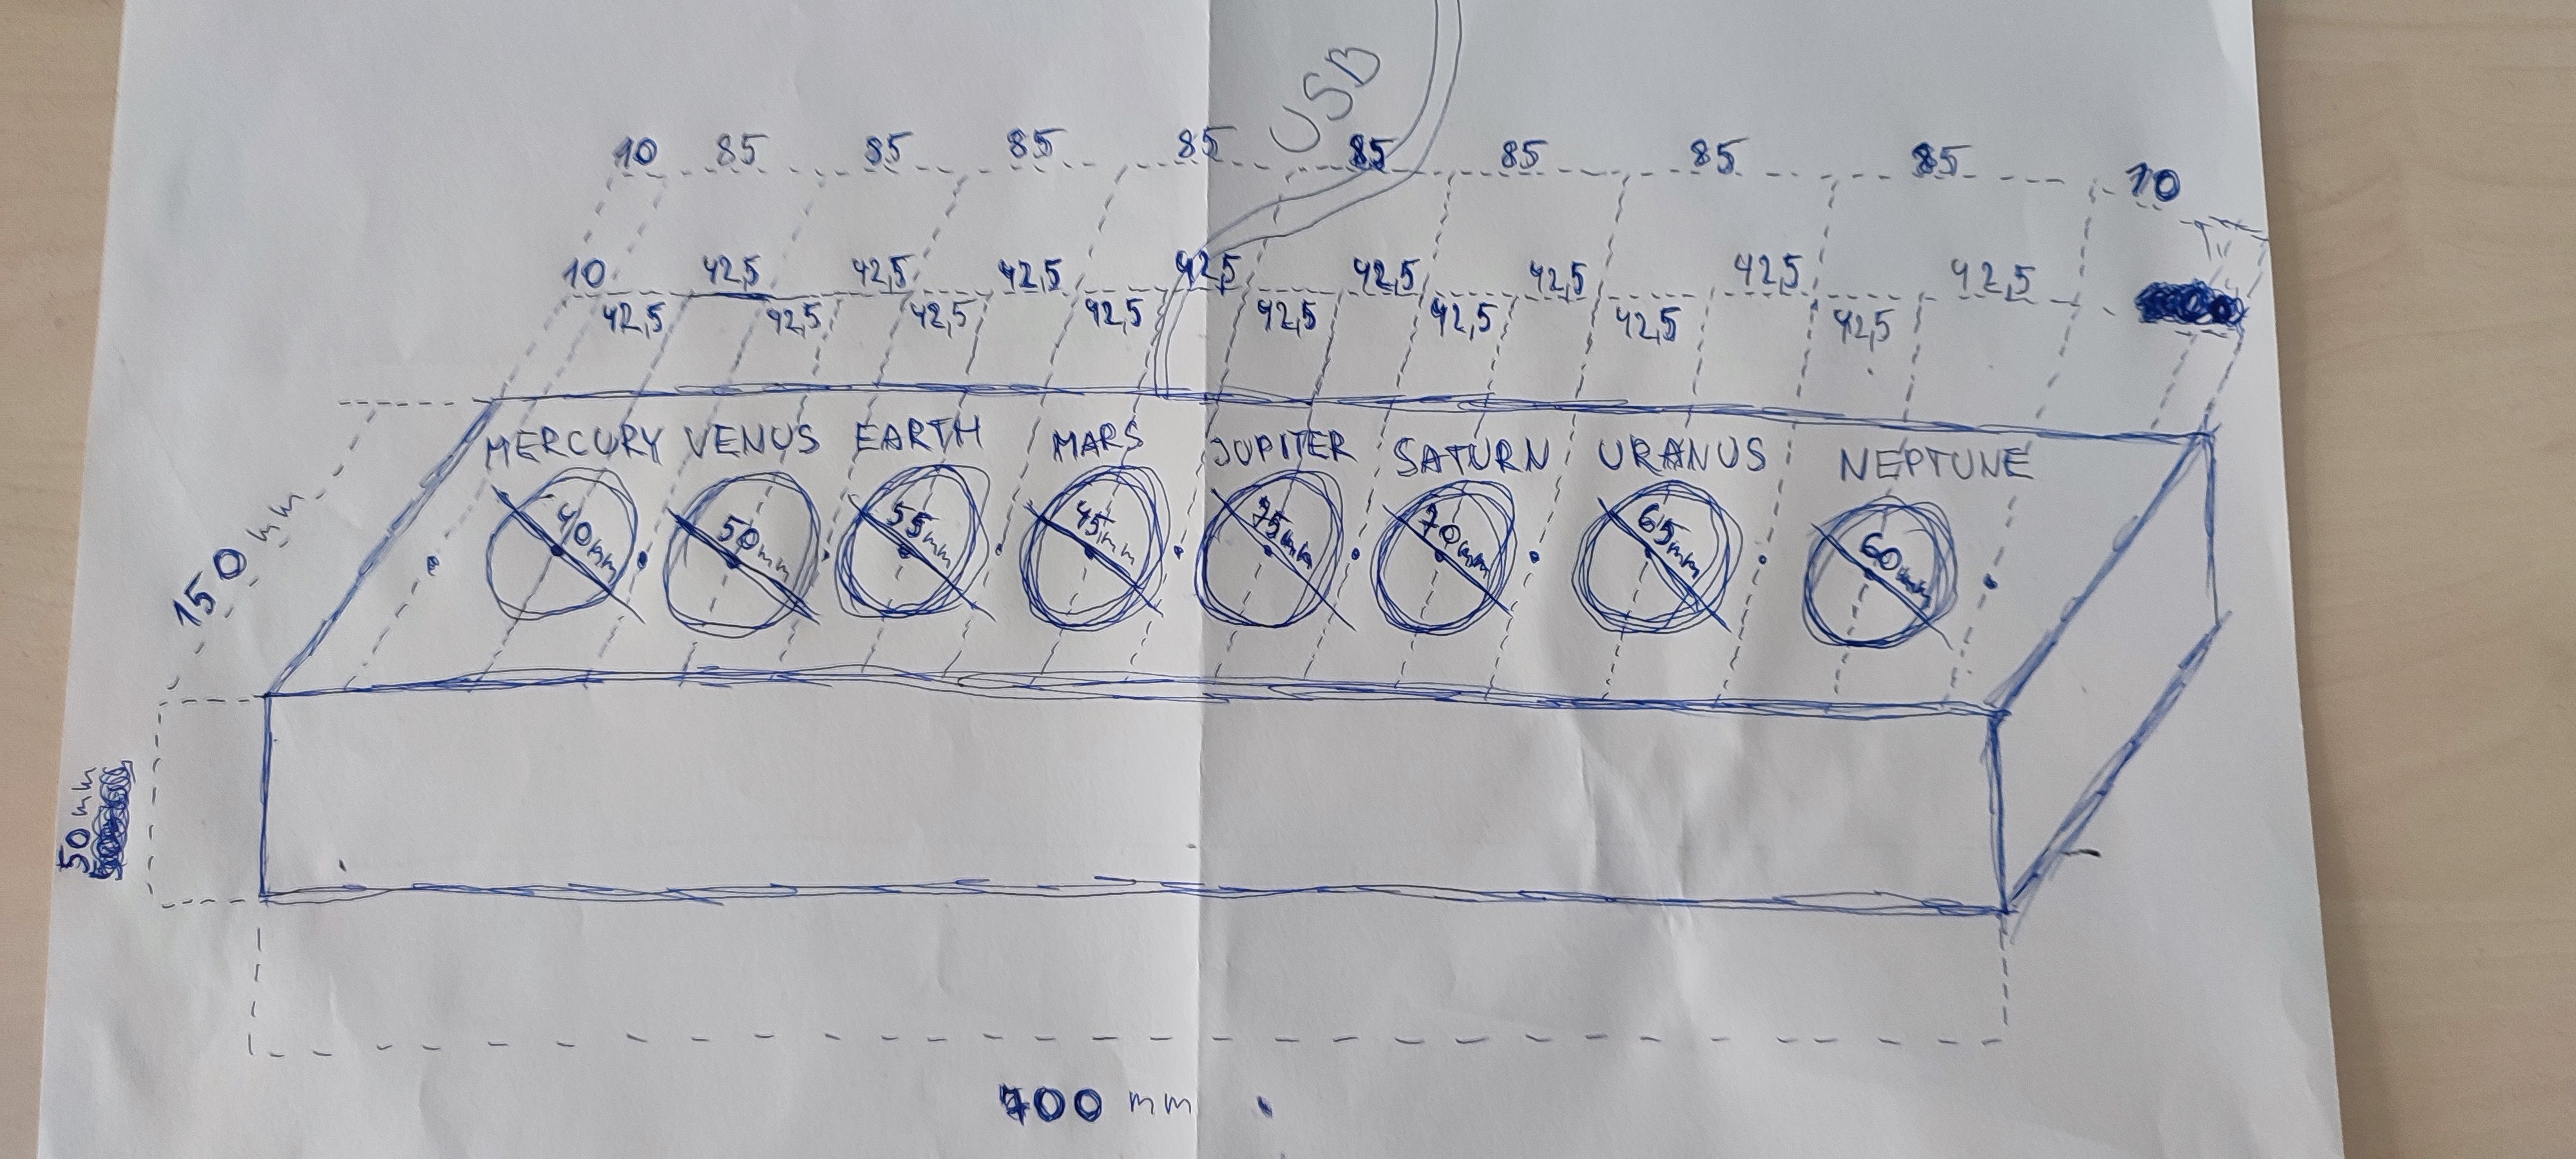 USB
10 85 85 85 85 85 85 85 85 10
10 42,5 42,5 42,5 42,5 42,5 42,5 42,5 42,5
42,5 42,5 42,5 42,5 42,5 42,5 42,5 42,5
MERCURY VENUS EARTH MARS JUPITER SATURN URANUS NEPTUNE
40mm 50mm 55mm 45mm 75mm 70mm 65mm 60mm
150 mm
50 mm
700 mm